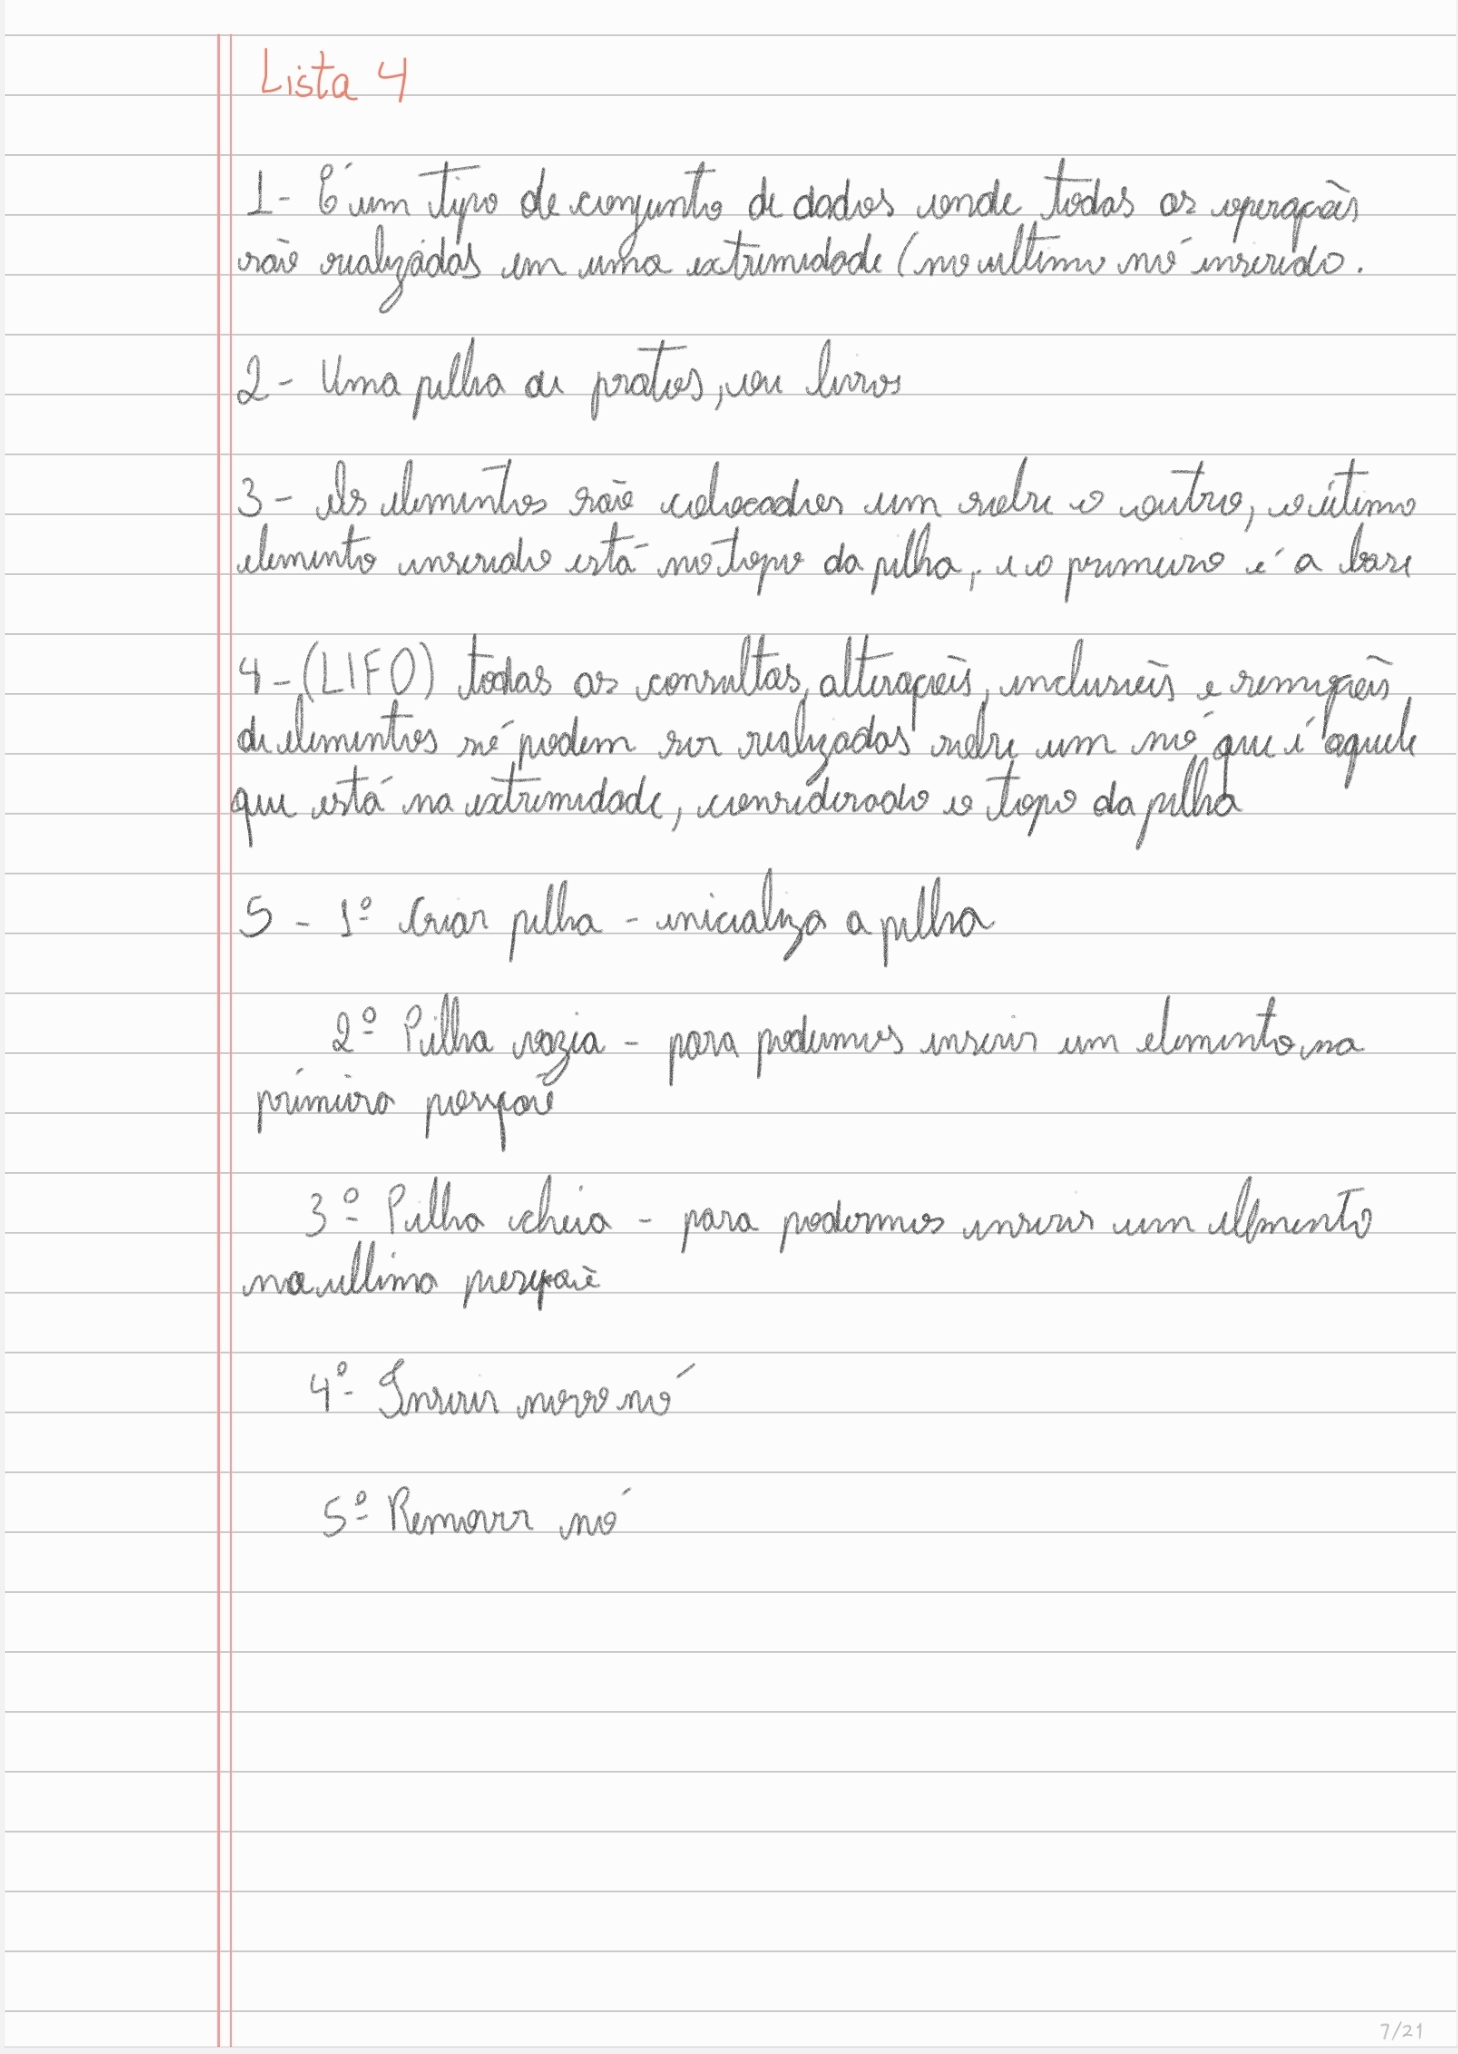 Lista 4
1- É um tipo de conjunto de dados onde todas as operações
são realizadas em uma extremidade (no ultimo nó inserido.
2- Uma pilha de pratos, ou livros
3- Os elementos são colocados um sobre o outro, o útimo
elemento inserido está no topo da pilha, e o primeiro é a base
4-(LIFO) todas as consultas, alterações, inclusões e remoções
de elementos só podem ser realizadas sobre um nó que é aquele
que está na extremidade, considerado o topo da pilha
5 - 1º Criar pilha - inicializa a pilha
2º Pilha vazia - para podermos inserir um elemento na
primeira posição
3º Pilha cheia - para podermos inserir um elemento
na ultima posição
4º Inserir novo nó
5º Remover nó
7/21